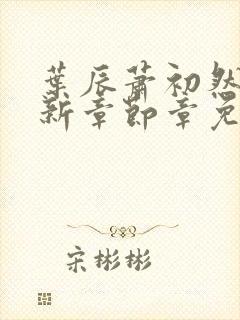 葉辰蕭初然
新章節章免
宋彬彬